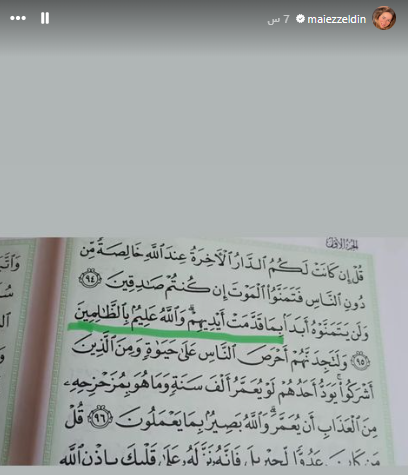 maiezzeldin 7 س
الجزء الأول
قُلْ إِن كَانَتْ لَكُمُ الدَّارُ الْآخِرَةُ عِندَ اللَّهِ خَالِصَةً مِّن
دُونِ النَّاسِ فَتَمَنَّوُا الْمَوْتَ إِن كُنتُمْ صَادِقِينَ ٩٤
وَلَن يَتَمَنَّوْهُ أَبَدًا بِمَا قَدَّمَتْ أَيْدِيهِمْ وَاللَّهُ عَلِيمٌ بِالظَّالِمِينَ
٩٥ وَلَتَجِدَنَّهُمْ أَحْرَصَ النَّاسِ عَلَىٰ حَيَاةٍ وَمِنَ الَّذِينَ
أَشْرَكُوا يَوَدُّ أَحَدُهُمْ لَوْ يُعَمَّرُ أَلْفَ سَنَةٍ وَمَا هُوَ بِمُزَحْزِحِهِ
مِنَ الْعَذَابِ أَن يُعَمَّرَ وَاللَّهُ بَصِيرٌ بِمَا يَعْمَلُونَ ٩٦ قُلْ
مَن كَانَ عَدُوًّا لِّجِبْرِيلَ فَإِنَّهُ نَزَّلَهُ عَلَىٰ قَلْبِكَ بِإِذْنِ اللَّهِ